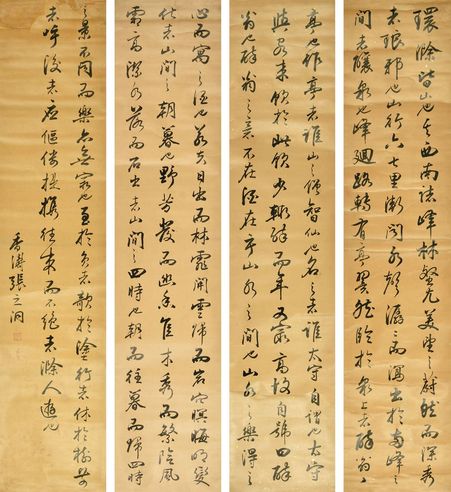 環滁皆山也其西南諸峰林壑尤美望之蔚然而深秀
者琅邪也山行六七里漸聞水聲潺々而瀉出於兩峰之
間者釀泉也峰廻路轉有亭翼然臨於泉上者醉翁
亭也作亭者誰山之僧智仙也名之者誰太守自謂也太守
與客來飲於此飲少輒醉而年又最高故自號曰醉
翁也醉翁之意不在酒在乎山水之間也山水之樂得之
心而寓之酒也若夫日出而林霏開雲歸而岩穴暝晦明變
化者山間之朝暮也野芳發而幽香佳木秀而繁陰風
霜高潔水落而石出者山間之四時也朝而往暮而歸四時
之景不同而樂亦無窮也至於負者歌於塗行者休於樹前
者呼後者應傴僂提攜往來而不絕者滁人遊也
香濤張之洞